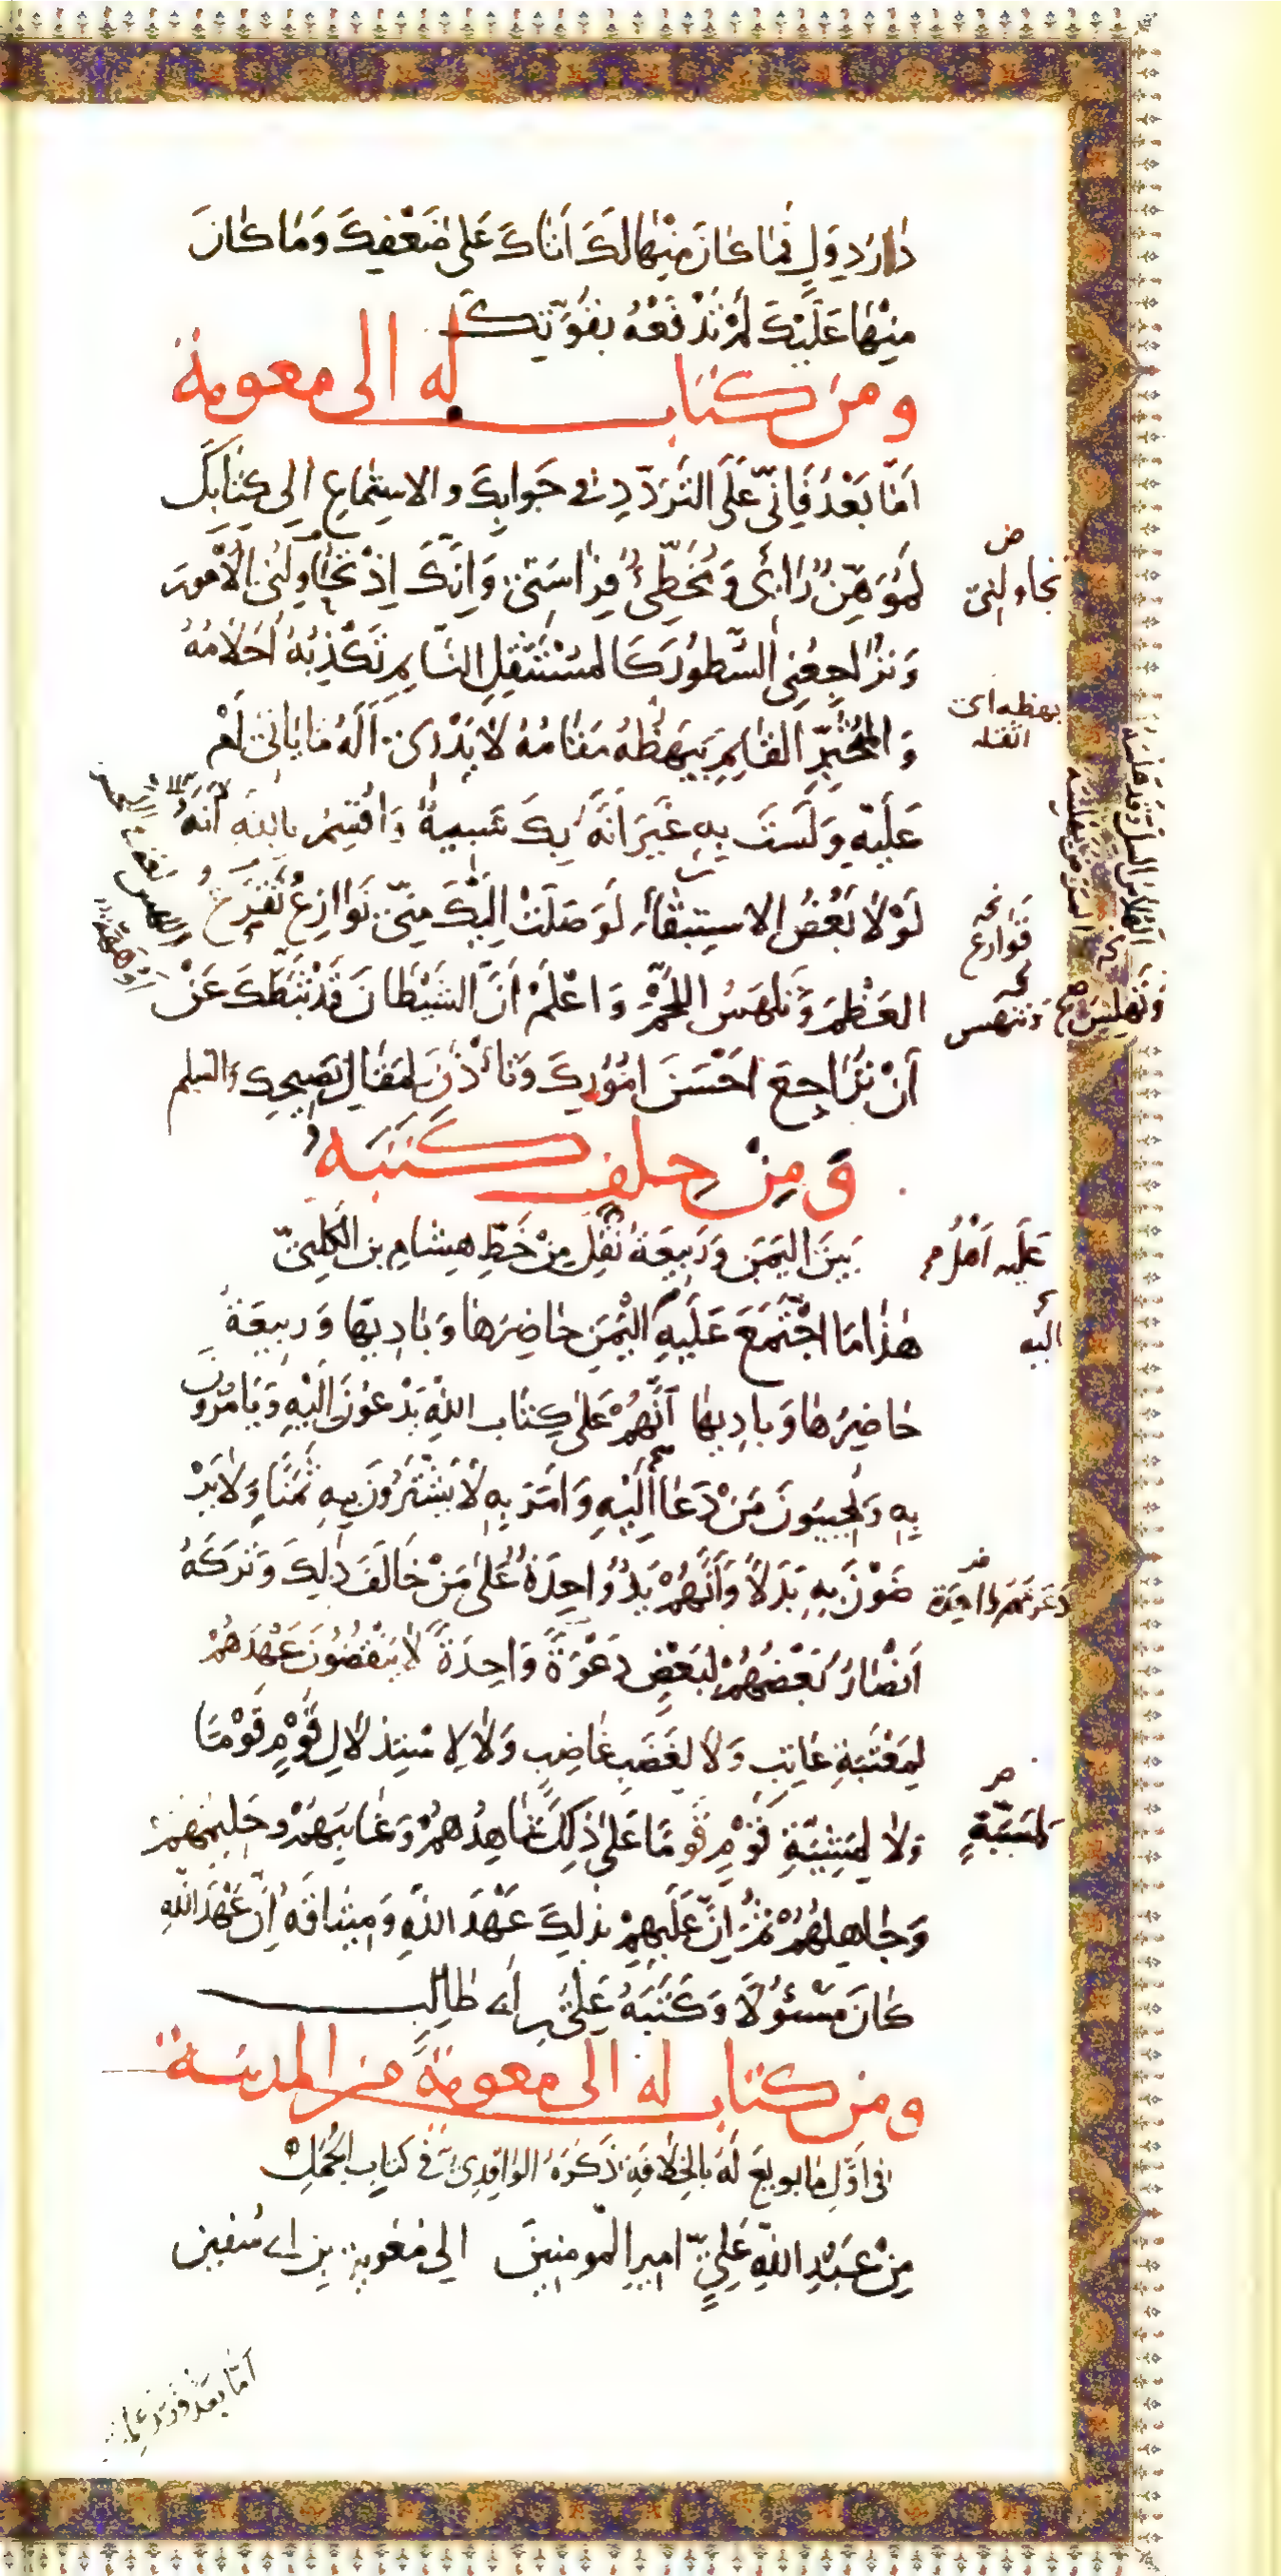 دَارُ دِوَلٍ فَمَا كَانَ مِنْهَا لَكَ اَتَاكَ عَلَى ضَعْفِكَ وَمَا كَانَ
مِنْهَا عَلَيْكَ لَمْ تَدْفَعْهُ بِقُوَّتِكَ
ومن كتاب له الى معوية
اَمَّا بَعْدُ فَاِنِّي عَلَى التَّرَدُّدِ فِي جَوَابِكَ وَالاِسْتِمَاعِ اِلَى كِتَابِكَ
لَمُوَهِّنٌ رَاْيِي وَمُخَطِّئٌ فِرَاسَتِي وَاِنَّكَ اِذْ تُحَاوِلُنِي الْاُمُورَ
تحاولني
وَتُرَاجِعُنِي السُّطُورَ كَالمُسْتَثْقِلِ النَّايِمِ تَكْذِبُهُ اَحْلَامُهُ
وَالمُتَحَيِّرِ القَايِمِ يَبْهَظُهُ مَقَامُهُ لَا يَدْرِي اَلَهُ مَا يَاتِي اَمْ
بهظه اى اثقله
عَلَيْهِ وَلَسْتَ بِهِ غَيْرَ اَنَّهُ بِكَ شَبِيهٌ وَاُقْسِمُ بِاللهِ اَنَّهُ
لَوْلَا بَعْضُ الاِسْتِبْقَاءِ لَوَصَلَتْ اِلَيْكَ مِنِّي نَوَازِعُ تَقْرَعُ
قوارع
العَظْمَ وَتَلْهَسُ اللَّحْمَ وَاعْلَمْ اَنَّ الشَّيْطَانَ قَدْ ثَبَّطَكَ عَنْ
وتنهس
وَتَهْلِسُ
اَنْ تُرَاجِعَ اَحْسَنَ اُمُورِكَ وَتَاْذَنَ لِمَقَالِ نَصِيحِكَ وَالسلم
وَمِنْ حِلْفٍ كَتَبَهُ
بَيْنَ اليَمَنِ وَرَبِيعَةَ نُقِلَ مِنْ خَطِّ هِشَامِ بن الكَلْبِيّ
هٰذَا مَا اجْتَمَعَ عَلَيْهِ الْيَمَنِ حَاضِرُهَا وَبَادِيهَا وَرَبِيعَةُ
عَلَيْهِ اَهْلُ
حَاضِرُهَا وَبَادِيهَا اَنَّهُمْ عَلَى كِتَابِ اللهِ يَدْعُونَ اِلَيْهِ وَيَامُرُونَ
اليه
بِهِ وَيُجِيبُونَ مَنْ دَعَا اِلَيْهِ وَاَمَرَ بِهِ لَا يَشْتَرُونَ بِهِ ثَمَنًا وَلَا يَرْ
ضَوْنَ بِهِ بَدَلًا وَاَنَّهُمْ يَدٌ وَاحِدَةٌ عَلَى مَنْ خَالَفَ ذٰلِكَ وَتَرَكَهُ
دَعْوَتُهُمْ وَاحِدَة
اَنْصَارٌ بَعْضُهُمْ لِبَعْضٍ دَعْوَةً وَاحِدَةً لَا يَنْقُضُونَ عَهْدَهُمْ
لِمَعْتَبَةِ عَاتِبٍ وَلَا لِغَضَبِ غَاضِبٍ وَلَا لِاسْتِذْلَالِ قَوْمٍ قَوْمًا
وَلَا لِمَشِيَّةِ قَوْمٍ قَوْمًا عَلَى ذٰلِكَ شَاهِدُهُمْ وَغَايِبُهُمْ وَحَلِيمُهُمْ
لِمَسَبَّةِ
وَجَاهِلُهُمْ ثُمَّ اِنَّ عَلَيْهِمْ بِذٰلِكَ عَهْدَ اللهِ وَمِيثَاقَهُ اِنَّ عَهْدَ اللهِ
كَانَ مَسْئُولًا وَكَتَبَهُ عَلِيُّ بن اَبِي طَالِبٍ
ومن كتاب له الى معوية من المدينة
فِي اَوَّلِ مَا بُويِعَ لَهُ بِالخِلَافَةِ ذَكَرَهُ الوَاقِدِيُّ فِي كِتَابِ الجَمَلِ
مِنْ عَبْدِ اللهِ عَلِيٍّ اَمِيرِ المُومِنِينَ اِلَى مُعَوِيَةَ بن اَبِي سُفْيَن
اَمَّا بَعْدُ فَقَدْ عَلِمْتَ